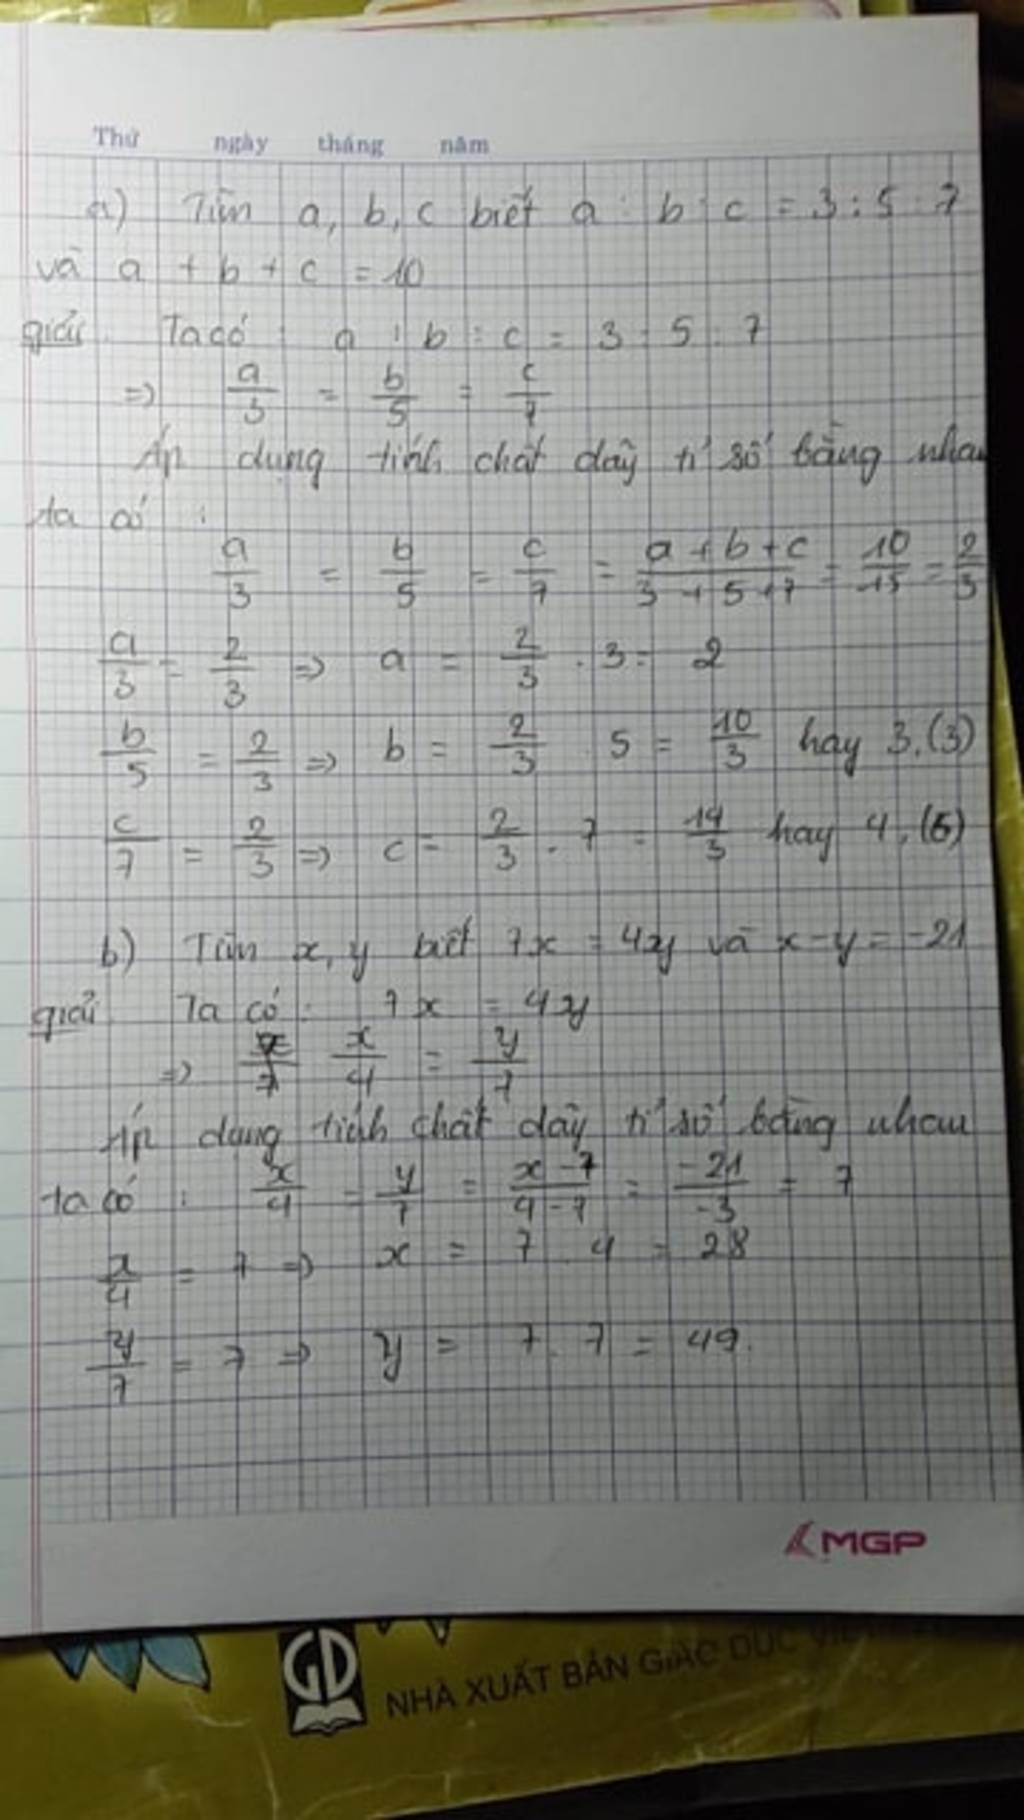 Thứ ngày tháng năm
a) Tìm a, b, c biết a : b : c = 3 : 5 : 7
và a + b + c = 10
giải Ta có : a : b : c = 3 : 5 : 7
=> a/3 = b/5 = c/7
Áp dụng tính chất dãy tỉ số bằng nhau
ta có :
a/3 = b/5 = c/7 = a + b + c / 3 + 5 + 7 = 10/15 = 2/3
a/3 = 2/3 => a = 2/3 . 3 = 2
b/5 = 2/3 => b = 2/3 . 5 = 10/3 hay 3,(3)
c/7 = 2/3 => c = 2/3 . 7 = 14/3 hay 4,(6)
b) Tìm x, y biết 7x = 4y và x - y = -21
giải Ta có : 7x = 4y
=> x/4 = y/7
Áp dụng tính chất dãy tỉ số bằng nhau
ta có : x/4 = y/7 = x - 7 / 4 - 7 = -21/-3 = 7
x/4 = 7 => x = 7 . 4 = 28
y/7 = 7 => y = 7 . 7 = 49.
MGP
GD
NHÀ XUẤT BẢN GIÁO DỤC